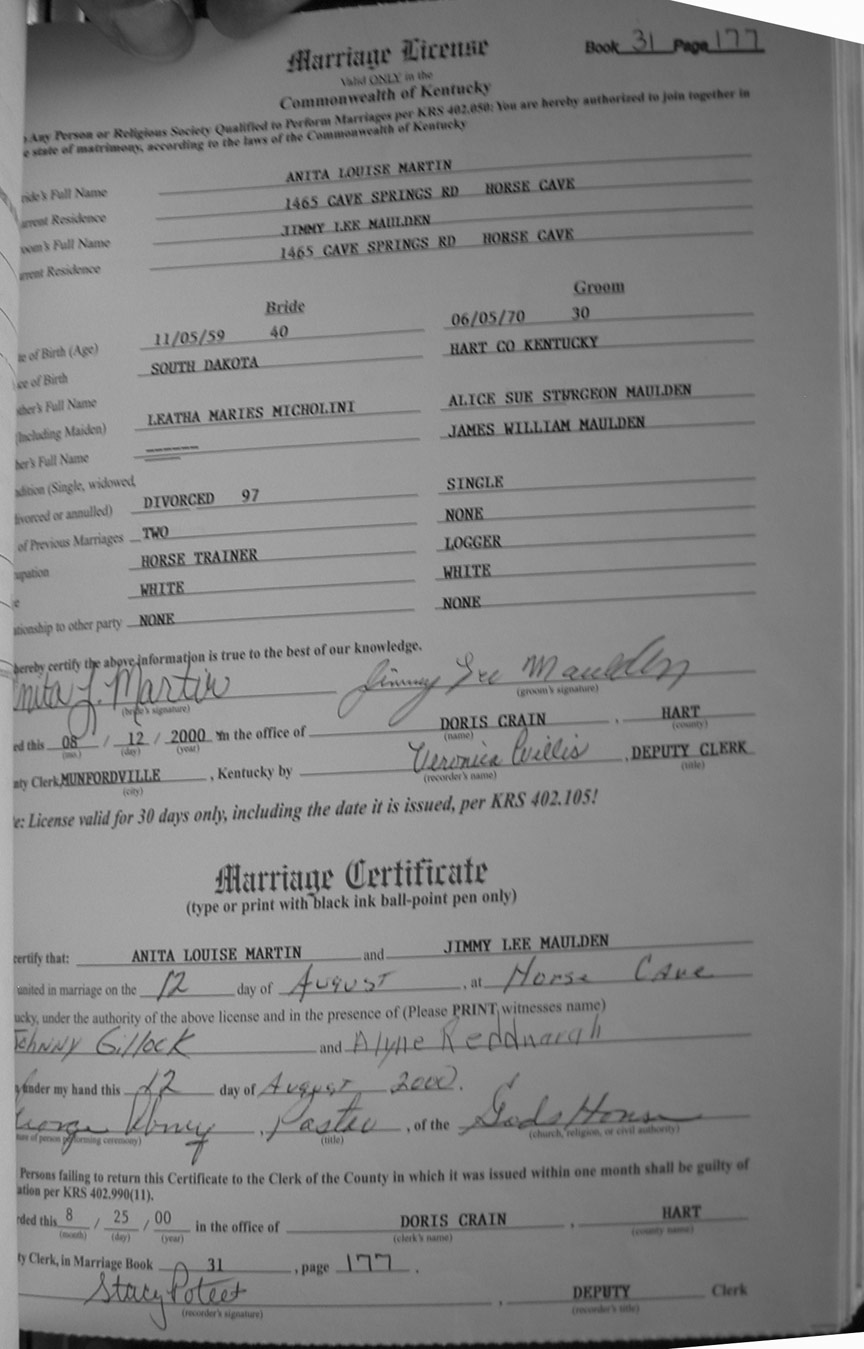 Marriage License
Book 31 Page 177
Valid ONLY in the
Commonwealth of Kentucky
Any Person or Religious Society Qualified to Perform Marriages per KRS 402.050: You are hereby authorized to join together in
e state of matrimony, according to the laws of the Commonwealth of Kentucky
ride's Full Name ANITA LOUISE MARTIN
urrent Residence 1465 CAVE SPRINGS RD HORSE CAVE
oom's Full Name JIMMY LEE MAULDEN
urrent Residence 1465 CAVE SPRINGS RD HORSE CAVE
Bride Groom
te of Birth (Age) 11/05/59 40 06/05/70 30
ce of Birth SOUTH DAKOTA HART CO KENTUCKY
other's Full Name
(Including Maiden) LEATHA MARIES MICHOLINI ALICE SUE STURGEON MAULDEN
her's Full Name ------ JAMES WILLIAM MAULDEN
ndition (Single, widowed,
ivorced or annulled) DIVORCED 97 SINGLE
of Previous Marriages TWO NONE
upation HORSE TRAINER LOGGER
e WHITE WHITE
ationship to other party NONE NONE
hereby certify the above information is true to the best of our knowledge.
nita L. Martin Jimmy Lee Maulden
(bride's signature) (groom's signature)
ed this 08 / 12 / 2000 in the office of DORIS CRAIN , HART
(mo.) (day) (year) (name) (county)
nty Clerk, MUNFORDVILLE , Kentucky by Veronica Willis , DEPUTY CLERK
(city) (recorder's name) (title)
e: License valid for 30 days only, including the date it is issued, per KRS 402.105!
Marriage Certificate
(type or print with black ink ball-point pen only)
certify that: ANITA LOUISE MARTIN and JIMMY LEE MAULDEN
united in marriage on the 12 day of August , at Horse Cave
ucky, under the authority of the above license and in the presence of (Please PRINT witnesses name)
Johnny Gillock and Alyne
under my hand this 12 day of August 2000.
George , Pastor , of the Gods House
ture of person performing ceremony) (title) (church, religion, or civil authority)
Persons failing to return this Certificate to the Clerk of the County in which it was issued within one month shall be guilty of
ation per KRS 402.990(11).
rded this 8 / 25 / 00 in the office of DORIS CRAIN , HART
(month) (day) (year) (clerk's name) (county name)
ty Clerk, in Marriage Book 31 , page 177 .
Stacy Poteet , DEPUTY Clerk
(recorder's signature) (recorder's title)